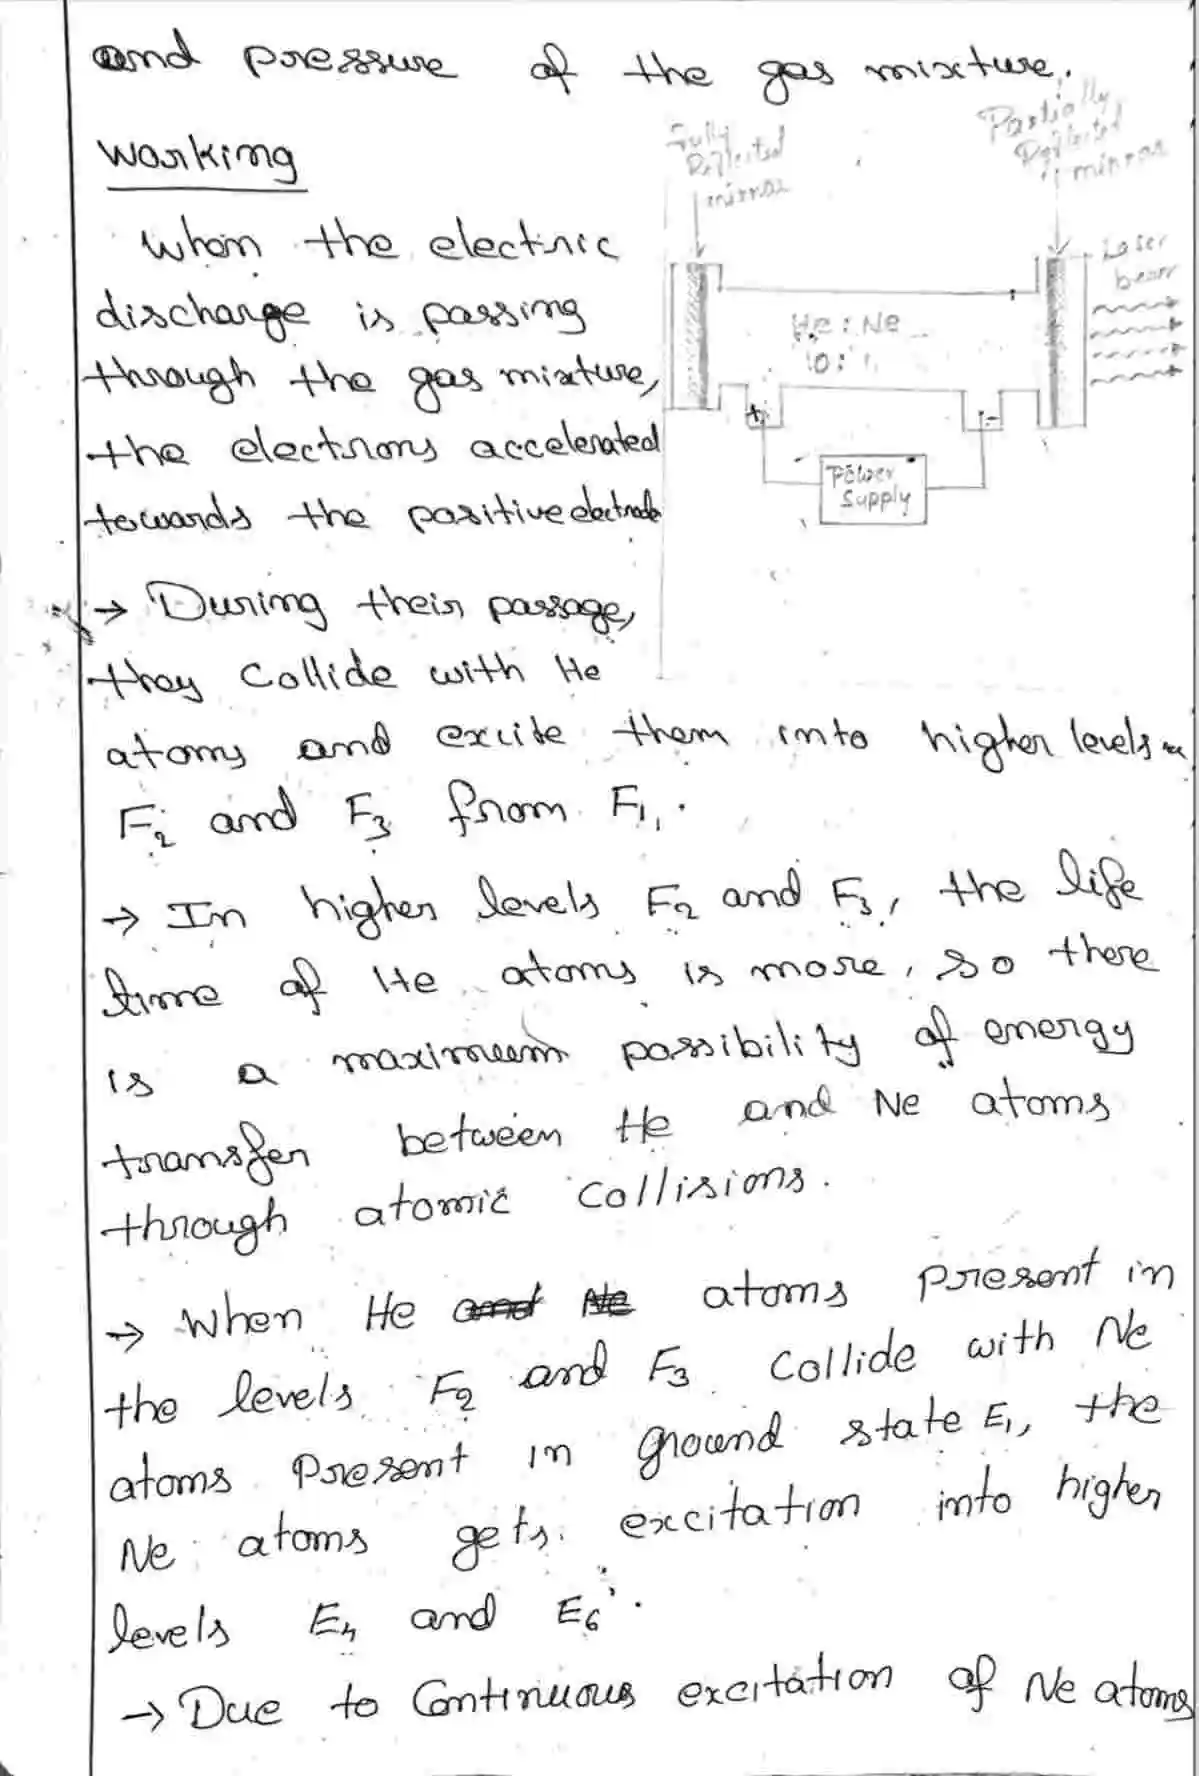 and pressure of the gas mixture.
Working
When the electric
discharge is passing
through the gas mixture,
the electrons accelerated
towards the positive electrode
→ During their passage,
they collide with He
atoms and excite them into higher levels
F₂ and F₃ from F₁.
→ In higher levels F₂ and F₃, the life
time of He atoms is more, so there
is a maximum possibility of energy
transfer between He and Ne atoms
through atomic collisions.
→ When He and Ne atoms present in
the levels F₂ and F₃ collide with Ne
atoms present in ground state E₁, the
Ne atoms gets excitation into higher
levels E₄ and E₆.
→ Due to Continuous excitation of Ne atoms
Fully
Reflected
mirror
Partially
Reflected
mirror
Laser
beam
He : Ne
10 : 1
+
-
Power
Supply